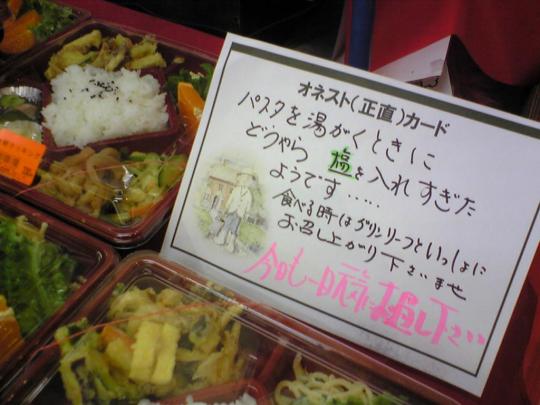 オネスト(正直)カード
パスタを湯がくときに
どうやら 塩を入れすぎた
ようです.....
食べる時はグリンリーフといっしょに
お召し上がり下さいませ
今日も一日元気に